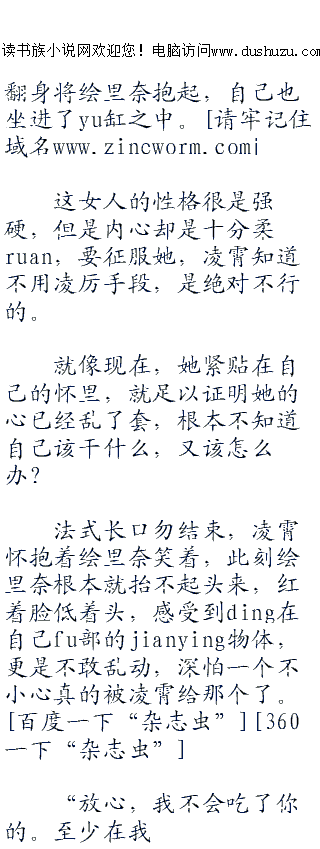 读书族小说网欢迎您！电脑访问www.dushuzu.com
翻身将绘里奈抱起，自己也
坐进了yu缸之中。[请牢记住
域名www.zincworm.com|
这女人的性格很是强
硬，但是内心却是十分柔
ruan，要征服她，凌霄知道
不用凌厉手段，是绝对不行
的。
就像现在，她紧贴在自
己的怀里，就足以证明她的
心已经乱了套，根本不知道
自己该干什么，又该怎么
办？
法式长口勿结束，凌霄
怀抱着绘里奈笑着，此刻绘
里奈根本就抬不起头来，红
着脸低着头，感受到ding在
自己fu部的jianying物体，
更是不敢乱动，深怕一个不
小心真的被凌霄给那个了。
[百度一下“杂志虫”][360
一下“杂志虫”]
“放心，我不会吃了你
的。至少在我